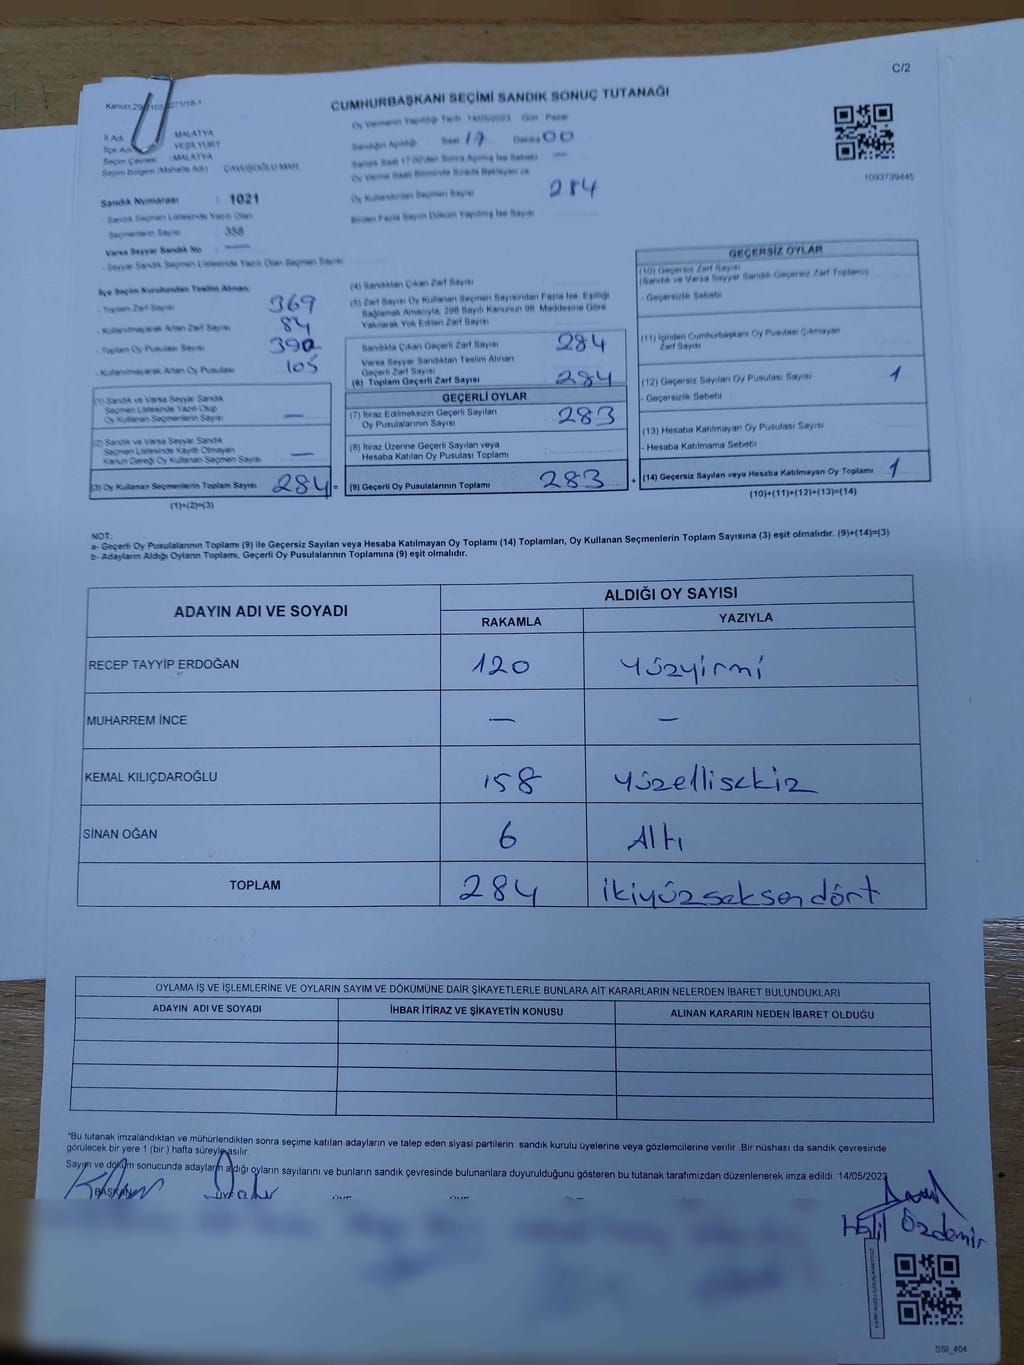 C/2
CUMHURBAŞKANI SEÇİMİ SANDIK SONUÇ TUTANAĞI
İl Adı MALATYA
İlçe Adı YEŞİLYURT
Seçim Çevresi : MALATYA
Seçim Bölgesi (Mahalle Adı) : ÇAVUŞOĞLU MAH.
Sandık Numarası : 1021
- Sandık Seçmen Listesinde Yazılı Olan
Seçmenlerin Sayısı : 358
Varsa Seyyar Sandık No : —
- Seyyar Sandık Seçmen Listesinde Yazılı Olan Seçmen Sayısı
Oy Vermenin Yapıldığı Tarih : 14/05/2023 Gün : Pazar
Sandığın Açıldığı Saat 17 Dakika 00
Sandık Saat 17:00'den Sonra Açılmış İse Sebebi —
Oy Verme Saati Bitiminde Sırada Bekleyen ve
Oy Kullandırılan Seçmen Sayısı 284
Birden Fazla Sayım Döküm Yapılmış İse Sayısı
1093739445
İlçe Seçim Kurulundan Teslim Alınan;
- Toplam Zarf Sayısı 369
- Kullanılmayarak Artan Zarf Sayısı 84
- Toplam Oy Pusulası Sayısı 390
- Kullanılmayarak Artan Oy Pusulası 105
(1) Sandık ve Varsa Seyyar Sandık
Seçmen Listesinde Yazılı Olup
Oy Kullanan Seçmenlerin Sayısı —
(2) Sandık ve Varsa Seyyar Sandık
Seçmen Listesinde Kayıtlı Olmayan
Kanun Gereği Oy Kullanan Seçmen Sayısı —
(3) Oy Kullanan Seçmenlerin Toplam Sayısı 284 =
(1)+(2)=(3)
(4) Sandıktan Çıkan Zarf Sayısı
(5) Zarf Sayısı Oy Kullanan Seçmen Sayısından Fazla İse, Eşitliği
Sağlamak Amacıyla, 298 Sayılı Kanunun 98. Maddesine Göre
Yakılarak Yok Edilen Zarf Sayısı
Sandıkta Çıkan Geçerli Zarf Sayısı 284
Varsa Seyyar Sandıktan Teslim Alınan
Geçerli Zarf Sayısı
(6) Toplam Geçerli Zarf Sayısı 284
GEÇERLİ OYLAR
(7) İtiraz Edilmeksizin Geçerli Sayılan
Oy Pusulasının Sayısı 283
(8) İtiraz Üzerine Geçerli Sayılan veya
Hesaba Katılan Oy Pusulası Toplamı
(9) Geçerli Oy Pusulalarının Toplamı 283 +
GEÇERSİZ OYLAR
(10) Geçersiz Zarf Sayısı
(Sandık ve Varsa Seyyar Sandık Geçersiz Zarf Toplamı)
- Geçersizlik Sebebi
(11) İçinden Cumhurbaşkanı Oy Pusulası Çıkmayan
Zarf Sayısı
(12) Geçersiz Sayılan Oy Pusulası Sayısı 1
- Geçersizlik Sebebi
(13) Hesaba Katılmayan Oy Pusulası Sayısı
- Hesaba Katılmama Sebebi
(14) Geçersiz Sayılan veya Hesaba Katılmayan Oy Toplamı 1
(10)+(11)+(12)+(13)=(14)
NOT:
a- Geçerli Oy Pusulalarının Toplamı (9) ile Geçersiz Sayılan veya Hesaba Katılmayan Oy Toplamı (14) Toplamları, Oy Kullanan Seçmenlerin Toplam Sayısına (3) eşit olmalıdır. (9)+(14)=(3)
b- Adayların Aldığı Oyların Toplamı, Geçerli Oy Pusulalarının Toplamına (9) eşit olmalıdır.
ADAYIN ADI VE SOYADI ALDIĞI OY SAYISI
RAKAMLA YAZIYLA
RECEP TAYYİP ERDOĞAN 120 Yüzyirmi
MUHARREM İNCE — —
KEMAL KILIÇDAROĞLU 158 Yüzellisekiz
SİNAN OĞAN 6 Altı
TOPLAM 284 İkiyüzseksendört
OYLAMA İŞ VE İŞLEMLERİNE VE OYLARIN SAYIM VE DÖKÜMÜNE DAİR ŞİKAYETLERLE BUNLARA AİT KARARLARIN NELERDEN İBARET BULUNDUKLARI
ADAYIN ADI VE SOYADI İHBAR İTİRAZ VE ŞİKAYETİN KONUSU ALINAN KARARIN NEDEN İBARET OLDUĞU
*Bu tutanak imzalandıktan ve mühürlendikten sonra seçime katılan adayların ve talep eden siyasi partilerin sandık kurulu üyelerine veya gözlemcilerine verilir. Bir nüshası da sandık çevresinde
görülecek bir yere 1 (bir) hafta süreyle asılır.
Sayım ve döküm sonucunda adayların aldığı oyların sayılarını ve bunların sandık çevresinde bulunanlara duyurulduğunu gösteren bu tutanak tarafımızdan düzenlenerek imza edildi. 14/05/2023
BAŞKAN ÜYE ÜYE ÜYE ÜYE
Halil Özdemir
SSİ_404